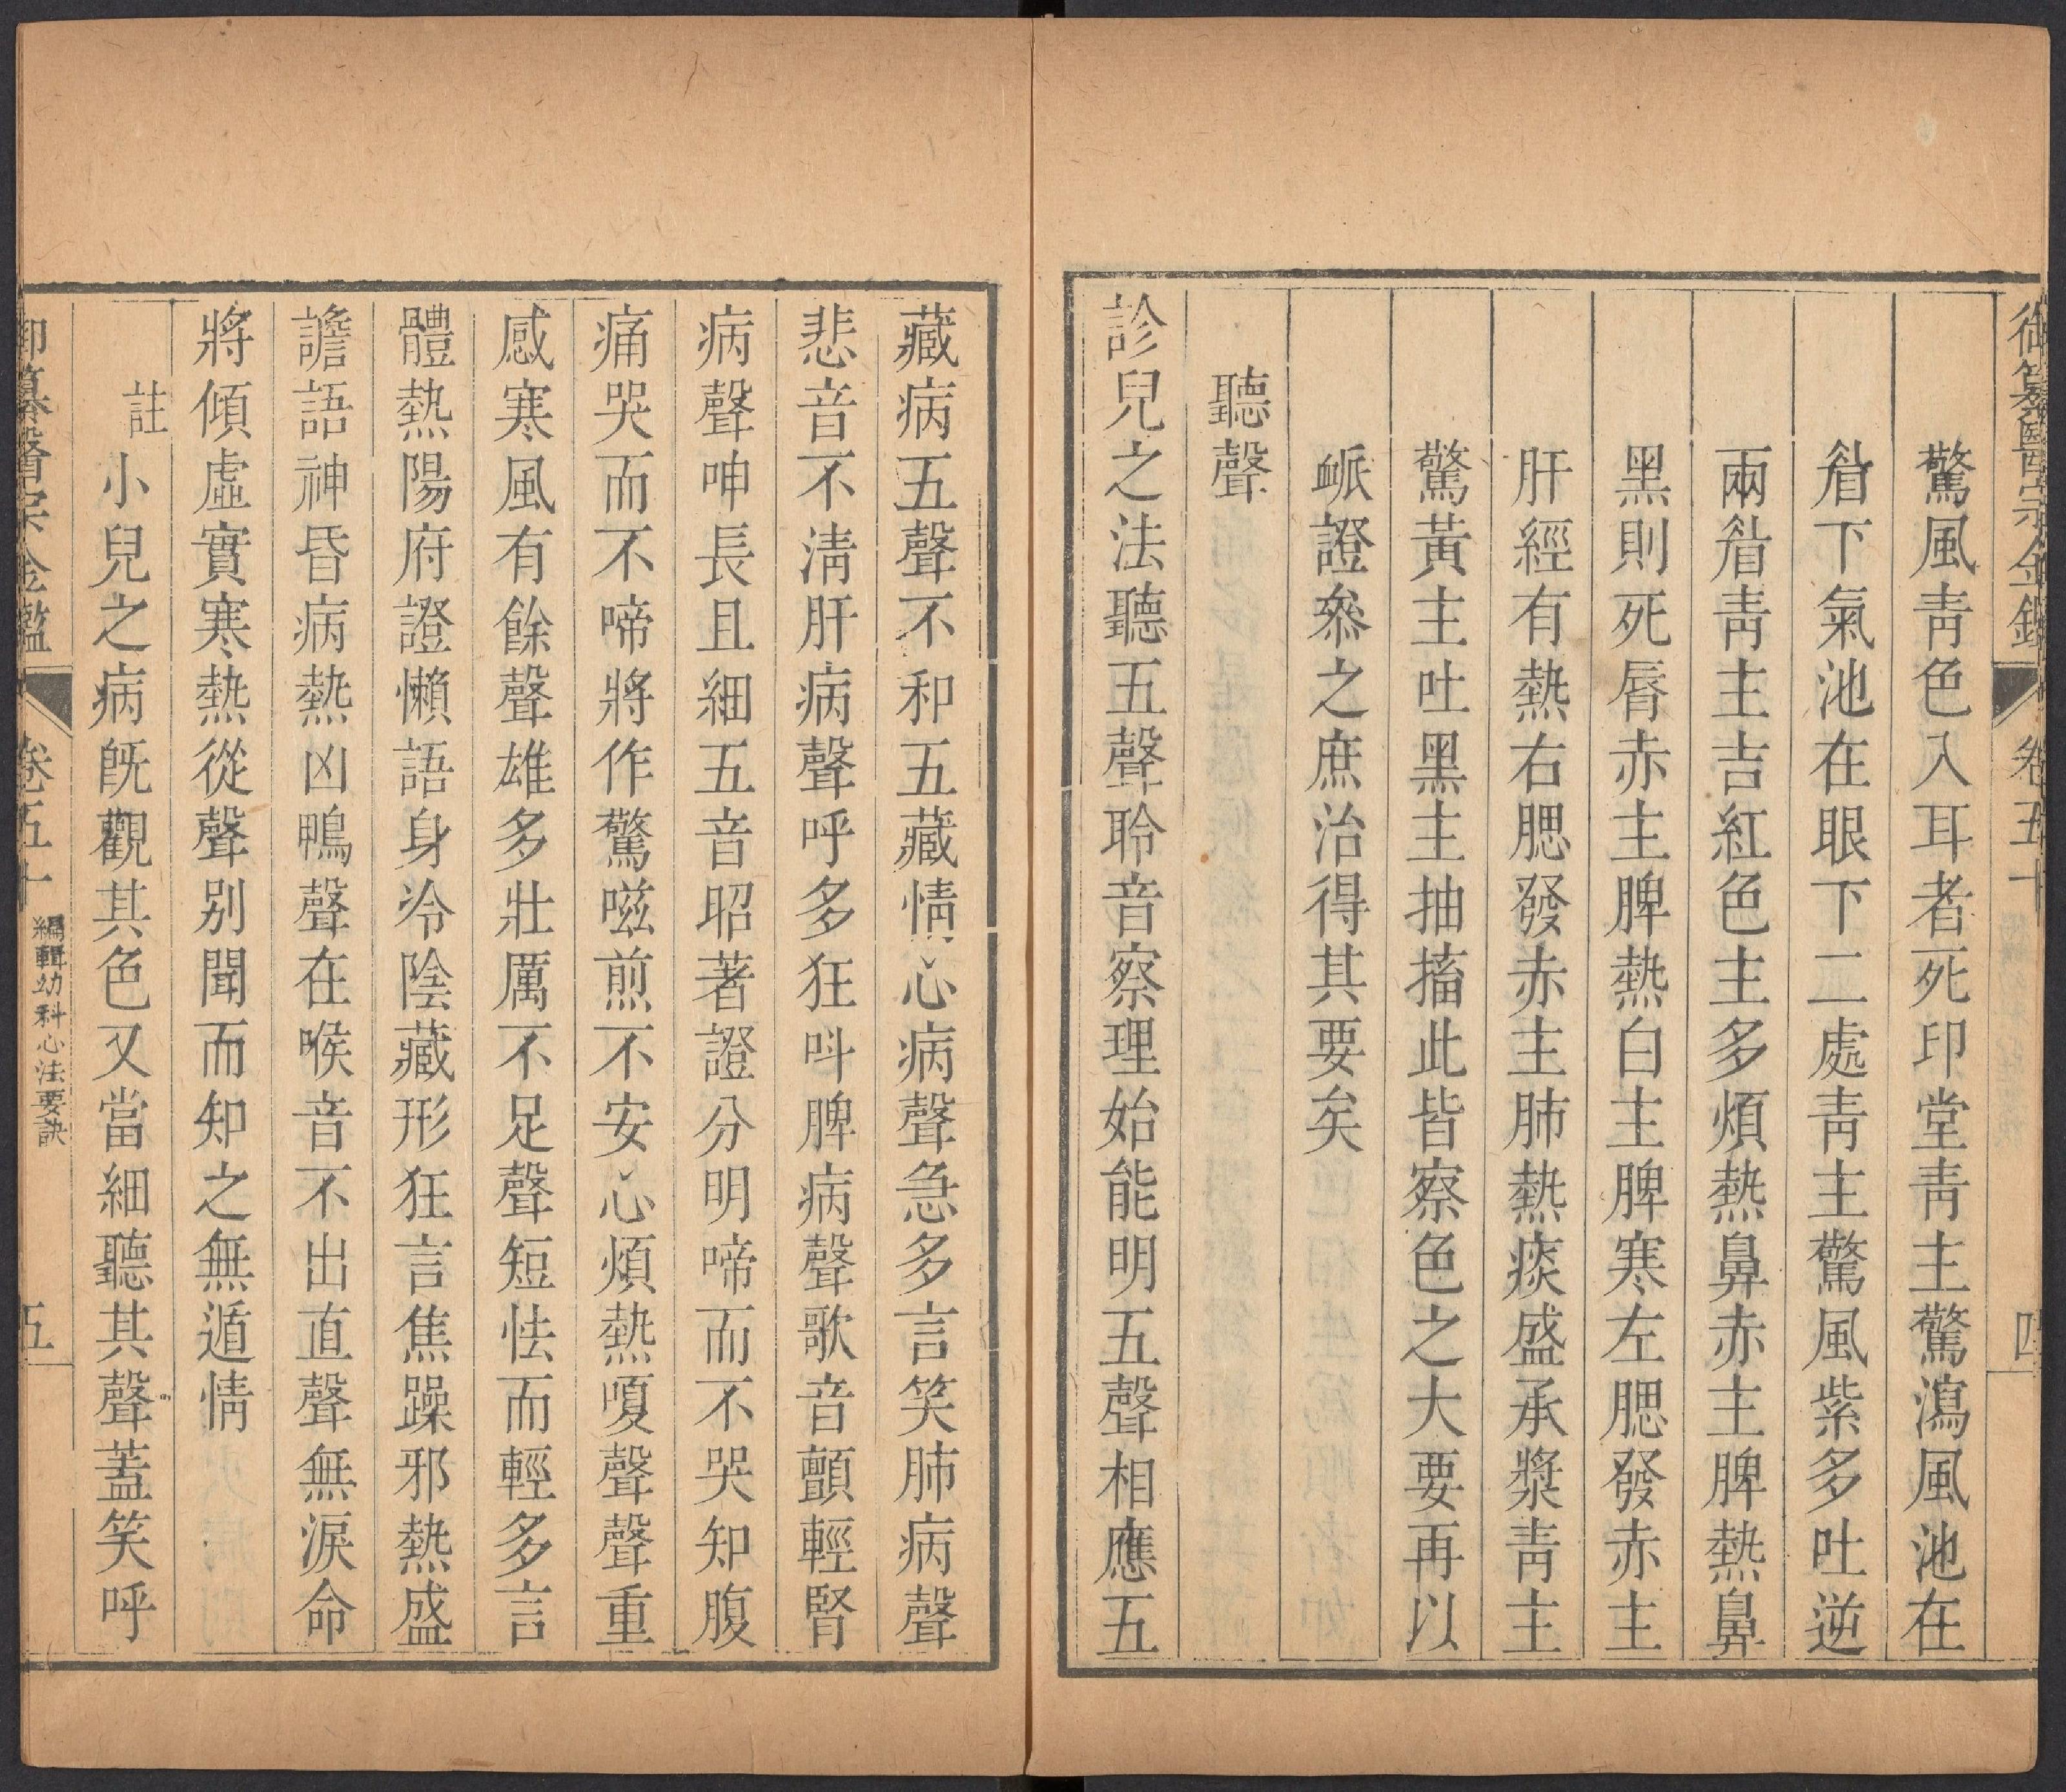 御纂醫宗金鑑 卷五十 四
驚風青色入耳者死印堂青主驚瀉風池在
眉下氣池在眼下二處青主驚風紫多吐逆
兩眉青主吉紅色主多煩熱鼻赤主脾熱鼻
黑則死脣赤主脾熱白主脾寒左腮發赤主
肝經有熱右腮發赤主肺熱痰盛承漿青主
驚黃主吐黑主抽搐此皆察色之大要再以
衇證叅之庶治得其要矣
聽聲
診兒之法聽五聲聆音察理始能明五聲相應五
藏病五聲不和五藏情心病聲急多言笑肺病聲
悲音不淸肝病聲呼多狂呌脾病聲歌音顫輕腎
病聲呻長且細五音昭著證分明啼而不哭知腹
痛哭而不啼將作驚嗞煎不安心煩熱嗄聲聲重
感寒風有餘聲雄多壯厲不足聲短怯而輕多言
體熱陽府證懶語身冷陰藏形狂言焦躁邪熱盛
譫語神昏病熱凶鴨聲在喉音不出直聲無淚命
將傾虛實寒熱從聲別聞而知之無遁情
註小兒之病旣觀其色又當細聽其聲蓋笑呼
御纂醫宗金鑑 卷五十 編輯幼科心法要訣 五